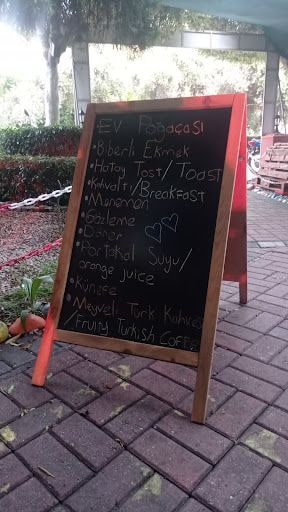 • EV Poğaçası
• Biberli Ekmek
• Hatay Tost/Toast
• Kahvaltı/Breakfast
• Menemen
• Gözleme
• Döner
• Portakal Suyu/
orange juice
• Künefe
• Meyveli Türk Kahvesi
/Fruity Turkish Coffee